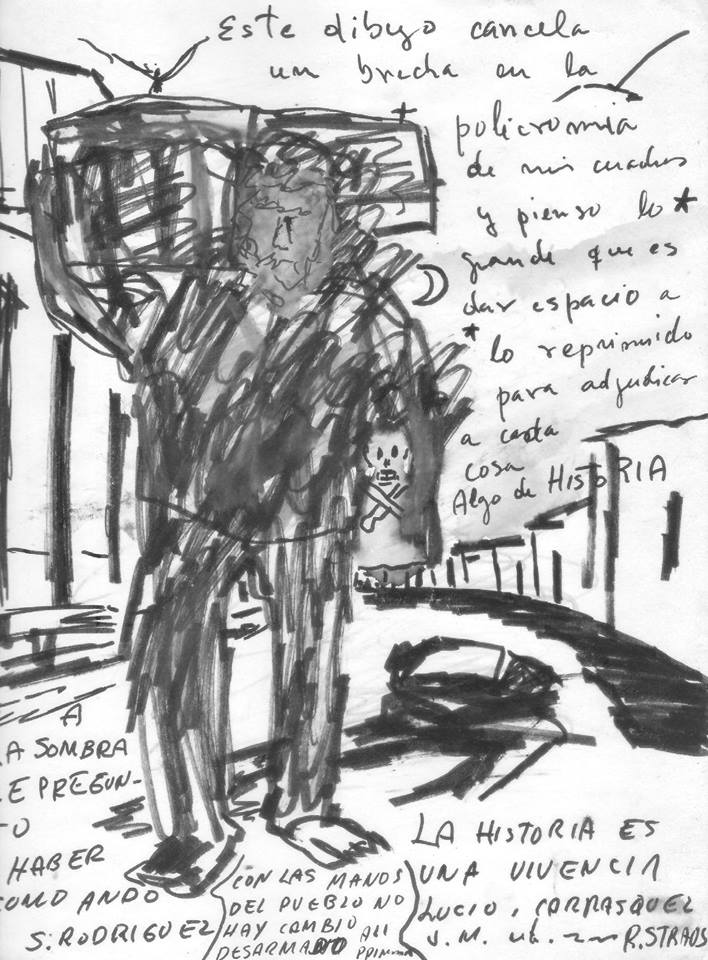 Este dibujo cancela
un brecha en la
policromia
de mis cuadros
y pienso lo *
grande que es
dar espacio a
* lo reprimido
para adjudicar
a cada
cosa
Algo de HISTORIA
A
A SOMBRA
E PREGUN-
TO
HABER
COMO ANDO
S. RODRIGUEZ
CON LAS MANOS
DEL PUEBLO NO
HAY CAMBIO
DESARMADO
ALI
PRIMERA
LA HISTORIA ES
UNA VIVENCIA
LUCIO, CARRASQUEL
J. M. R. STRAUS